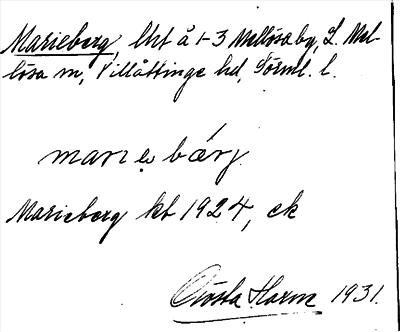 Marieberg, lht å 1-3 Mellösa by, L. Mel-
lösa sn, Villåttinge hd, Södml. l.
marıebærj
Marieberg kb 1924, ek
Gösta Harm 1931.